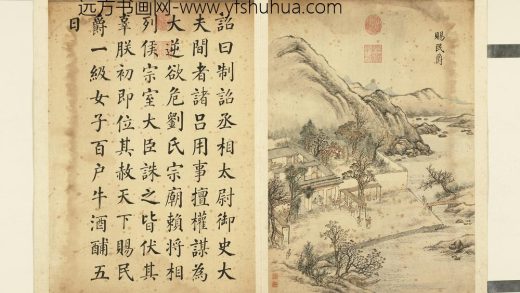 远方书画网-www.yfshuhua.com
賜民爵
詔曰制詔丞相太尉御史大
夫間者諸呂用事擅權謀為
大逆欲危劉氏宗廟賴將相
列侯宗室大臣誅之皆伏其
辜朕初即位其赦天下賜民
爵一級女子百户牛酒酺五
日